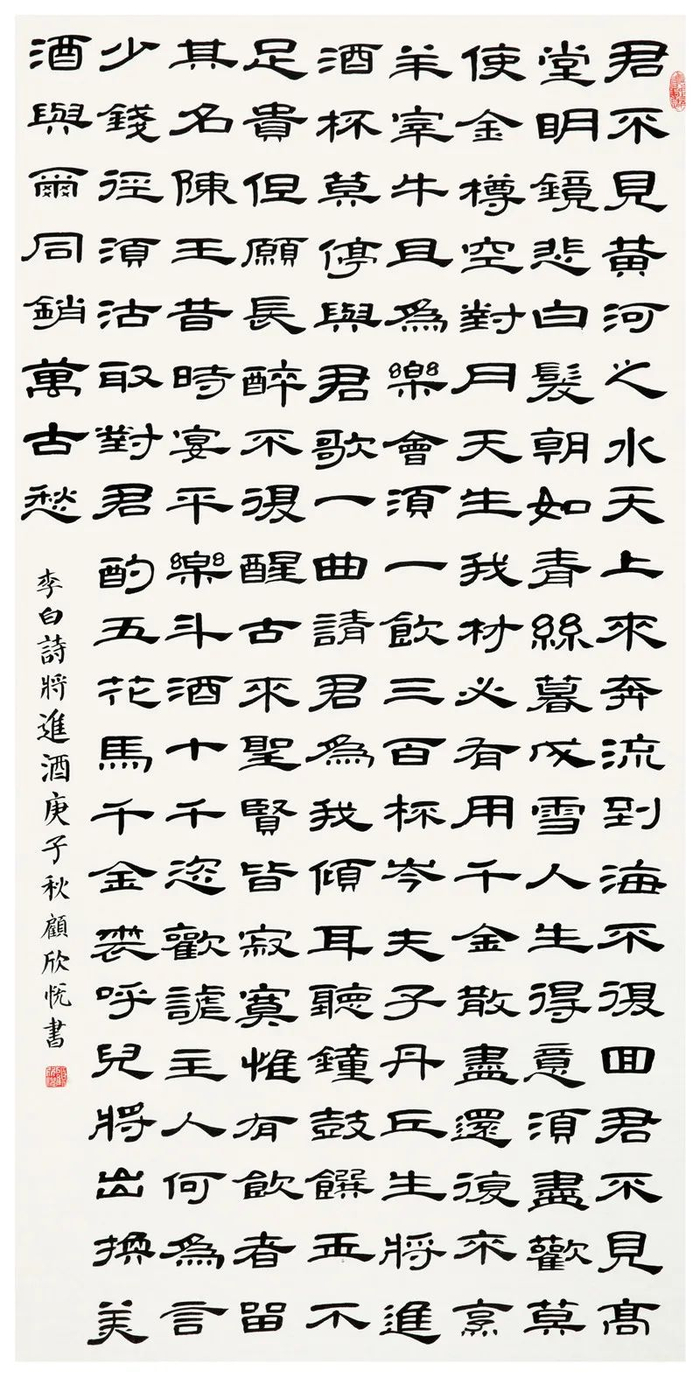 君不見黃河之水天上來奔流到海不復回君不見高
堂明鏡悲白髮朝如青絲暮成雪人生得意須盡歡莫
使金樽空對月天生我材必有用千金散盡還復來烹
羊宰牛且為樂會須一飲三百杯岑夫子丹丘生將進
酒杯莫停與君歌一曲請君為我傾耳聽鐘鼓饌玉不
足貴但願長醉不復醒古來聖賢皆寂寞惟有飲者留
其名陳王昔時宴平樂斗酒十千恣歡謔主人何為言
少錢徑須沽取對君酌五花馬千金裘呼兒將出換美
酒與爾同銷萬古愁
李白詩將進酒庚子秋顧欣悅書